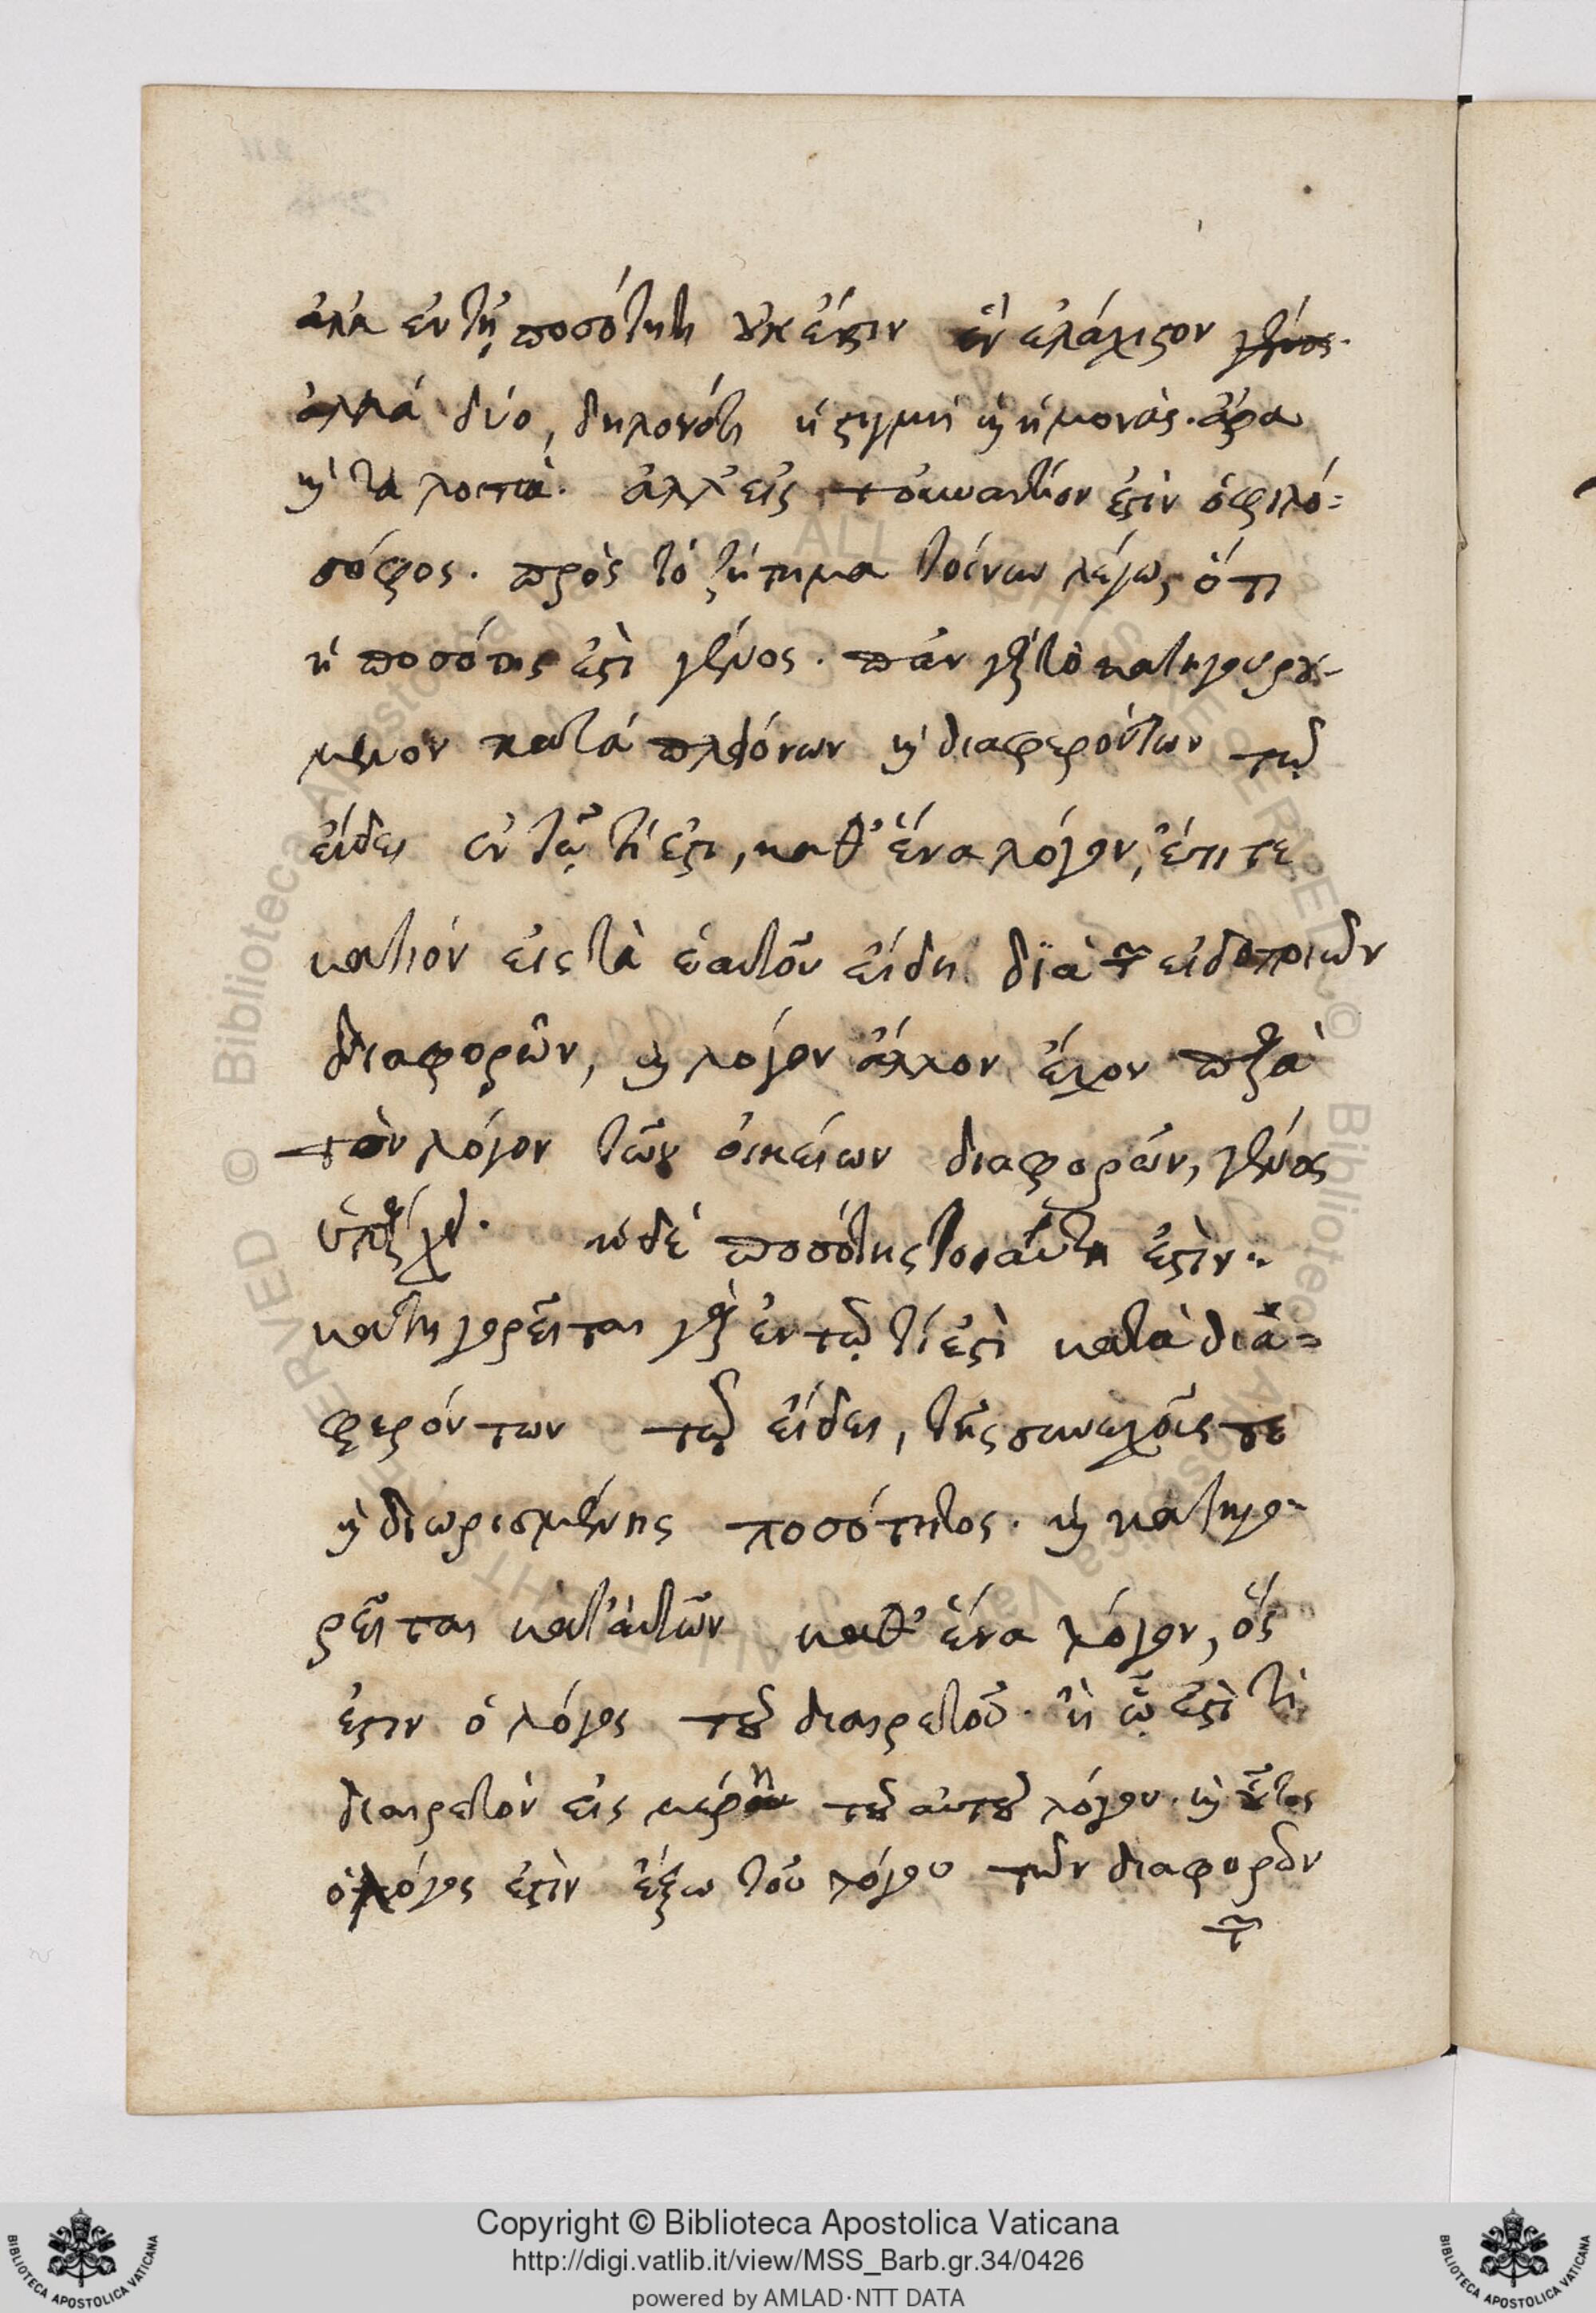 ἀλλὰ ἐν τῇ ποσότητι οὐκ ἔστιν ἓν ἐλάχιστον
ἀλλὰ δύο, δηλονότι ἡ στιγμὴ καὶ ἡ μονάς. ἄρα
καὶ τὰ λοιπά. ἀλλ' εἰς τοὐναντίον ἐστὶν ὁ φιλό=
σοφος. πρὸς τὸ ζήτημα τοίνυν λέγω, ὅτι
ἡ ποσότης ἐστὶ γένος. πᾶν γὰρ τὸ κατηγορού-
μενον κατὰ πλειόνων καὶ διαφερόντων τῷ
εἴδει ἐν τῷ τί ἐστι, καθ' ἕνα λόγον, ἔτι τε
κατιὸν εἰς τὰ ἑαυτοῦ εἴδη διὰ τῶν εἰδοποιῶν
διαφορῶν, καὶ λόγον ἄλλον ἔχον παρὰ
τὸν λόγον τῶν οἰκείων διαφορῶν, γένος
ὑπάρχει. ἡ δὲ ποσότης τοιαύτη ἐστίν.
κατηγορεῖται γὰρ ἐν τῷ τί ἐστὶ κατὰ δια=
φερόντων τῷ εἴδει, τῆς συνεχοῦς τε
καὶ διωρισμένης ποσότητος. καὶ κατηγο-
ρεῖται κατ' αὐτῶν καθ' ἕνα λόγον, ὅς
ἐστιν ὁ λόγος τοῦ διαιρετοῦ. ἢ ᾧ ἐστί τι
διαιρετὸν εἰς μέρη τοῦ αὐτοῦ λόγου. καὶ οὗτος
ὁ λόγος ἐστὶν ἔξω τοῦ λόγου τῶν διαφορῶν
τῶν
Copyright © Biblioteca Apostolica Vaticana
http://digi.vatlib.it/view/MSS_Barb.gr.34/0426
powered by AMLAD·NTT DATA
BIBLIOTECA APOSTOLICA VATICANA
BIBLIOTECA APOSTOLICA VATICANA